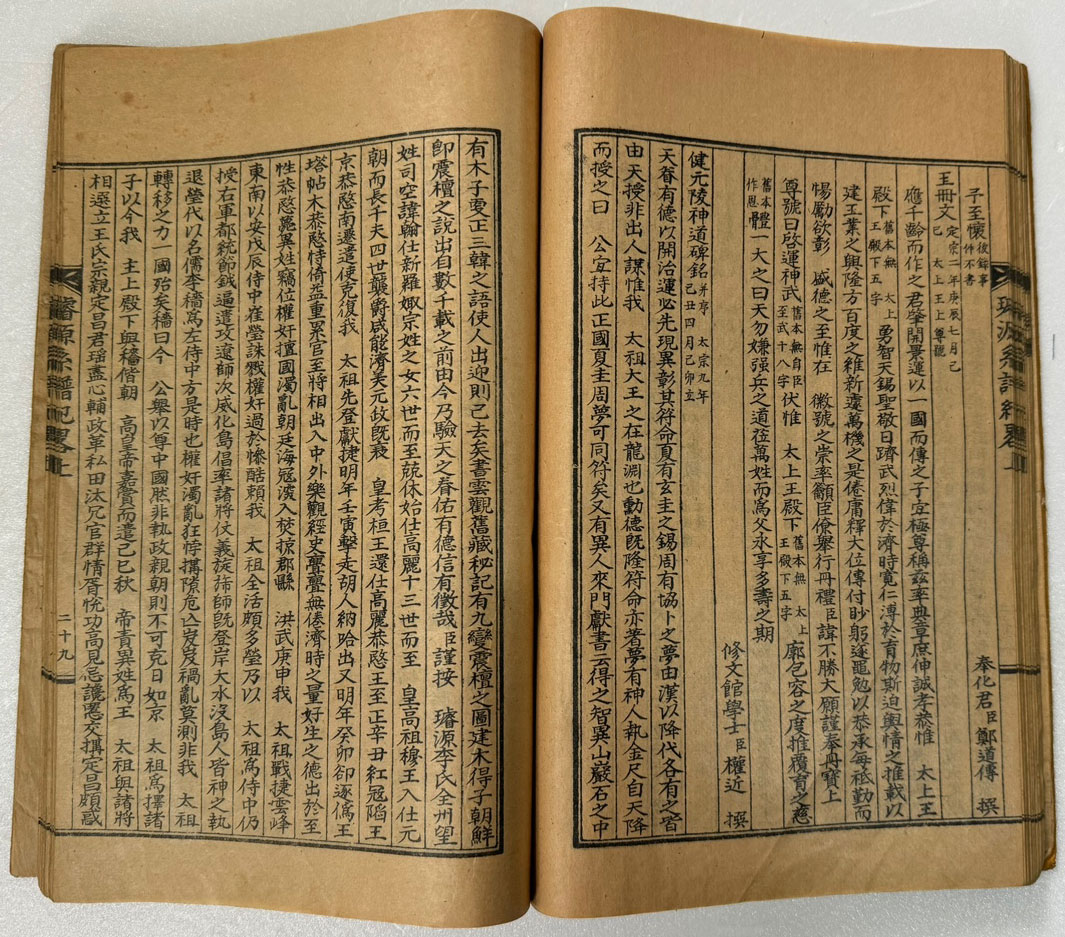 璿源系譜紀畧 上
子至懷後叙事件不書
奉化君臣鄭道傳 撰
王冊文定宗二年庚辰七月己巳 太上王上尊號
應千齡而作之君肇開景運以一國而傳之子宜極尊稱玆率典章庶伸誠孝恭惟 太上王
殿下舊本無 太上王殿下五字 勇智天錫聖敬日躋武烈偉於濟時寬仁溥於育物斯迫輿情之推戴以
建王業之興隆方百度之維新遽萬機之是倦庸釋大位傳付眇躬逐黽勉以恭承每祗勤而
惕勵欲彰 盛德之至惟在 徽號之崇率籲臣僚舉行冊禮臣諱不勝大願謹奉冊寶上
尊號曰啓運神武舊本無自臣至武十八字伏惟 太上王殿下舊本無 太上王殿下五字 廓包容之度推覆育之慈
舊本體作恩骨一大之曰天勿嫌强兵之道莅萬姓而爲父永享多壽之期
修文館學士臣權近 撰
健元陵神道碑銘并序 太宗九年己丑四月己卯立
天眷有德以開治運必先現異彰其符命夏有玄圭之錫周有協卜之夢由漢以降代各有之皆
由天授非出人謀惟我 太祖大王之在龍淵也勳德旣隆符命亦著夢有神人執金尺自天降
而授之曰 公宜持此正國夏圭周夢可同符矣又有異人來門獻書云得之智異山巖石之中
有木子更正三韓之語使人出迎則已去矣書雲觀舊藏秘記有九變震檀之圖建木得子朝鮮
卽震檀之說出自數千載之前由今乃驗天之眷佑有德信有徵哉臣謹按 璿源李氏全州望
姓司空諱翰仕新羅娵宗姓之女六世而至兢休始仕高麗十三世而至 皇高祖穆王入仕元
朝而長千夫四世襲爵咸能濟美元政旣衰 皇考桓王還仕高麗恭愍王至正辛丑紅冦陷王
京恭愍南遷遣使克復我 太祖先登獻捷明年壬寅擊走胡人納哈出又明年癸卯却逐僞王
塔帖木恭愍恃倚益重累官至將相出入中外樂觀經史亹亹無倦濟時之量好生之德出於至
性恭愍薨異姓竊位權奸擅國濁亂朝廷海冦深入焚掠郡縣 洪武庚申我 太祖戰捷雲峰
東南以安戊辰侍中崔瑩誅戮權奸過於慘酷賴我 太祖全活頗多瑩乃以 太祖爲侍中仍
授右軍都統節鉞逼遣攻遼師次威化島倡率諸將仗義旋旆師旣登岸大水沒島人皆神之執
退瑩代以名儒李穡爲左侍中方是時也權奸濁亂狂悖搆隙危亾岌岌禍亂莫測非我 太祖
轉移之力一國殆矣穡曰今 公舉以尊中國然非執政親朝則不可克日如京 太祖爲擇諸
子以今我 主上殿下與穡偕朝 高皇帝嘉賞而遣己巳秋 帝責異姓爲王 太祖與諸將
相選立王氏宗親定昌君瑤盡心輔政革私田汰冗官群情胥悅功高見忌讒慝交搆定昌頗惑
璿源系譜紀畧 上
二十九